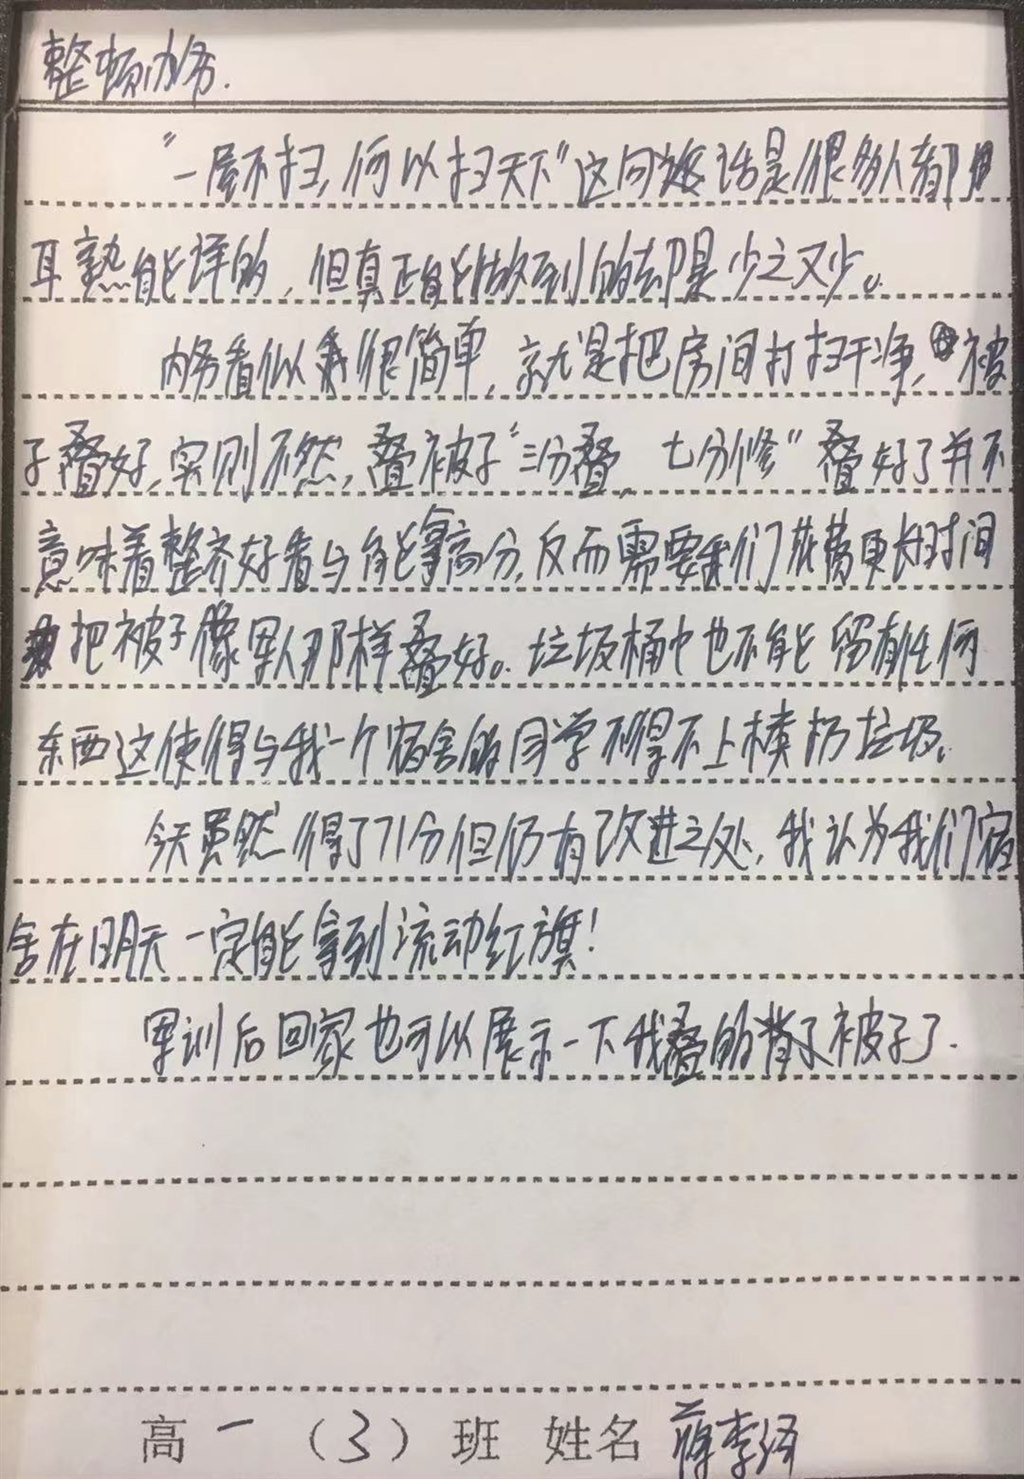 整顿内务.
“一屋不扫,何以扫天下”这句话是很多人都
耳熟能详的,但真正能做到的却是少之又少。
内务看似很简单,就是把房间打扫干净,被
子叠好,实则不然,叠被子“三分叠,七分修”叠好了并不
意味着整齐好看与能拿高分,反而需要我们花费更长时间
把被子像军人那样叠好。垃圾桶中也不能留有任何
东西这使得与我一个宿舍的同学不得不上楼扔垃圾.
今天虽然得了71分但仍有改进之处,我认为我们宿
舍在明天一定能拿到流动红旗!
军训后回家也可以展示一下我叠的被子了.
高一(3)班 姓名 蒋李泽